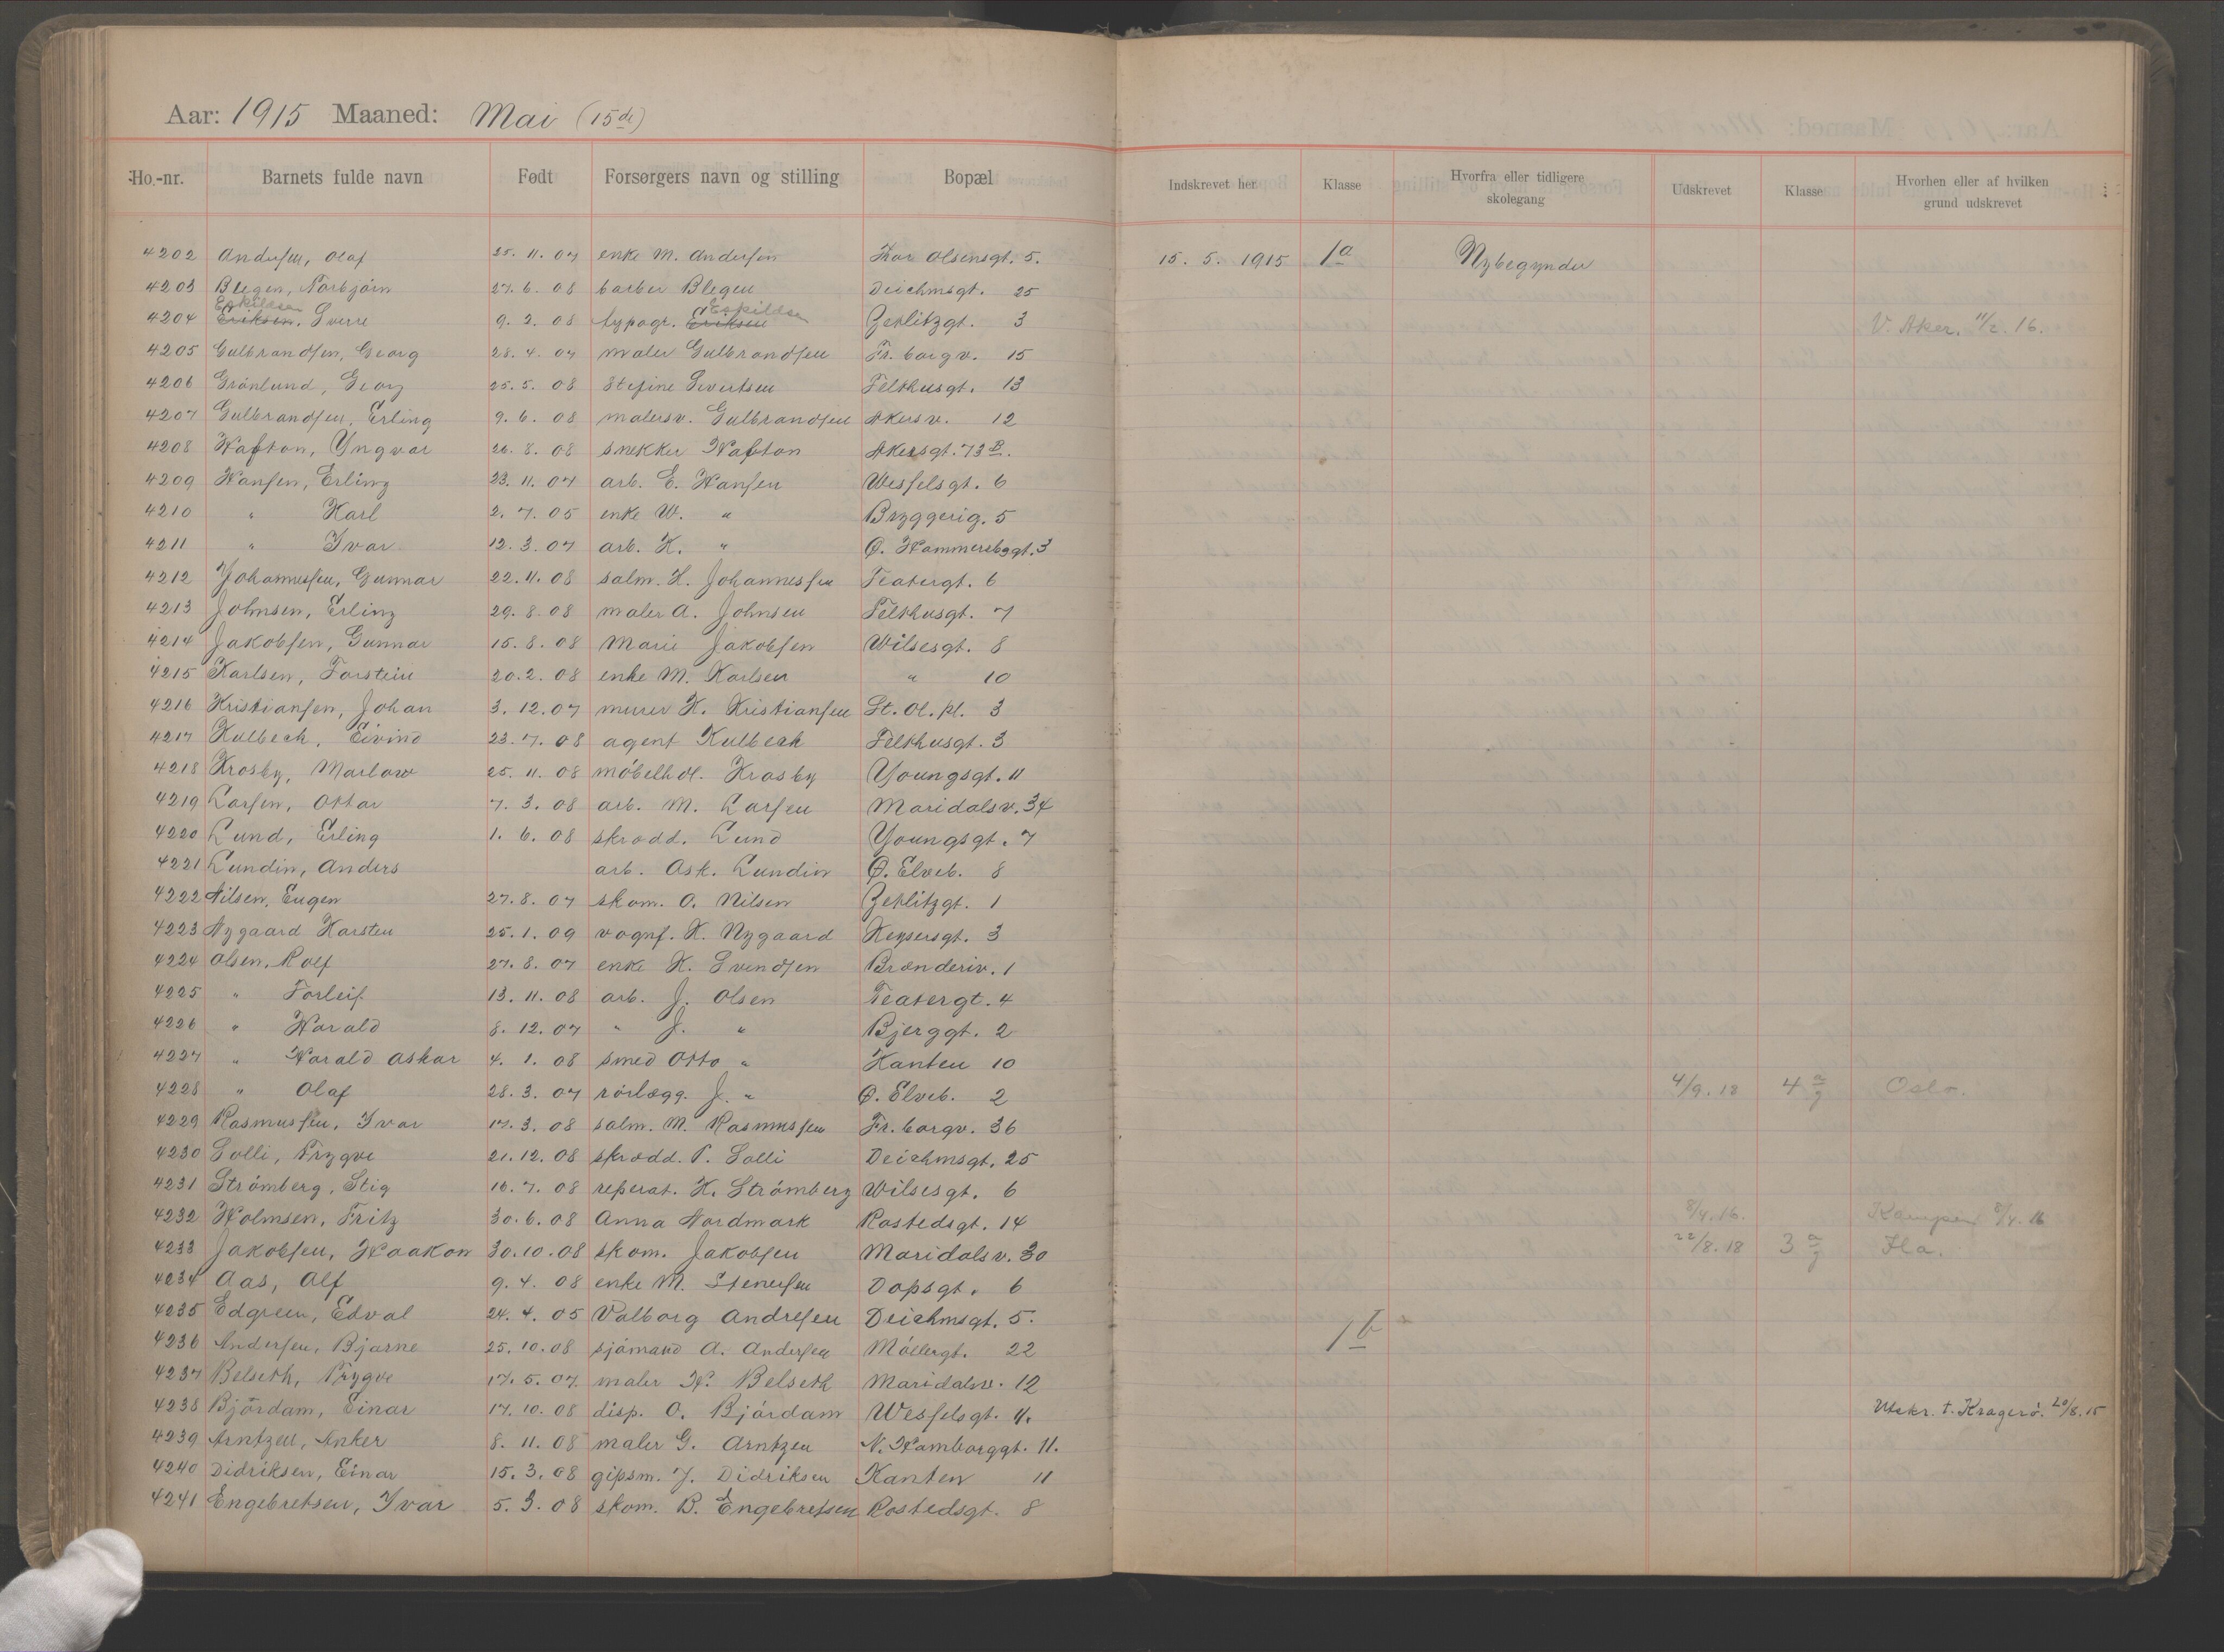 Aar: 1915 Maaned: Mai (15de)
Ho.-nr. Barnets fulde navn Født Forsørgers navn og stilling Bopæl Indskrevet her Klasse Hvorfra eller tidligere skolegang Udskrevet Klasse Hvorhen eller af hvilken grund udskrevet
4202 Andersen, Olaf 25. 11. 07 enke M. Andersen Thor Olsensgt. 5. 15. 5. 1915 1a Nybegynder
4203 Blegen, Norbjörn 27. 6. 08 barber Blegen Deichmsgt. 25
4204 Eriksen, Eskildsen Sverre 9. 2. 08 typogr. Eriksen Eskildsen Zetlitzgt. 3 V. Aker. 11/2. 16.
4205 Gulbrandsen, Georg 28. 4. 07 maler Gulbrandsen Fr. borgv. 15
4206 Grönlund, Georg 25. 5. 08 Stefine Sivertsen Telthusgt. 13
4207 Gulbrandsen, Erling 9. 6. 08 malersv. Gulbrandsen Akersv. 12
4208 Hafton, Yngvar 26. 8. 08 snekker Hafton Akersgt. 73B.
4209 Hansen, Erling 23. 11. 07 arb. E. Hansen Wesselsgt. 6
4210 " Karl 2. 7. 05 enke W. " Bryggerig. 5
4211 " Ivar 12. 3. 07 arb. K. " Ø. Hammersbggt. 3
4212 Johannessen, Gunnar 22. 11. 08 salm. H. Johannessen Teatergt. 6
4213 Johnsen, Erling 29. 8. 08 maler A. Johnsen Telthusgt. 7
4214 Jakobsen, Gunnar 15. 8. 08 Marie Jakobsen Wilsesgt. 8
4215 Karlsen, Torstein 20. 2. 08 enke M. Karlsen " 10
4216 Kristiansen, Johan 3. 12. 07 murer K. Kristiansen St. Ol. pl. 3
4217 Kulbeck, Eivind 23. 7. 08 agent Kulbeck Telthusgt. 3
4218 Krosby, Marlow 25. 11. 08 möbelhdl. Krosby Youngsgt. 11
4219 Larsen, Ottar 7. 3. 08 arb. M. Larsen Maridalsv. 34
4220 Lund, Erling 1. 6. 08 skrædd. Lund Youngsgt. 7
4221 Lundin, Anders arb. Osk. Lundin Ø. Elveb. 8
4222 Nilsen, Eugen 27. 8. 07 skom. O. Nilsen Zetlitzgt. 1
4223 Nygaard Karsten 25. 1. 09 vognf. K. Nygaard Keysersgt. 3
4224 Olsen, Rolf 27. 8. 07 enke K. Svendsen Brænderiv. 1
4225 " Torleif 13. 11. 08 arb. J. Olsen Teatergt. 4
4226 " Harald 8. 12. 07 " J. " Bjerggt. 2
4227 " Harald Oskar 4. 1. 08 smed Otto " Kanten 10
4228 " Olaf 28. 3. 07 rörlægg. J. " Ø. Elveb. 2 4/9. 18 4a/g Oslo.
4229 Rasmussen, Ivar 17. 3. 08 salm. M. Rasmussen Fr. borgv. 36
4230 Solli, Trygve 21. 12. 08 skrædd. P. Solli Deichmsgt. 25
4231 Strömberg, Stig 16. 7. 08 reperat. K. Strömberg Wilsesgt. 6
4232 Holmsen, Fritz 30. 6. 08 Anna Nordmark Rostedsgt. 14 8/4. 16. Kampen 8/4. 16
4233 Jakobsen, Haakon 30. 10. 08 skom. Jakobsen Maridalsv. 30 22/8. 18 3a/g Ila.
4234 Aas, Alf 9. 4. 08 enke M. Stenersen Dopsgt. 6
4235 Edgreen, Edval 24. 4. 05 Valborg Andresen Deichmsgt. 5.
4236 Andersen, Bjarne 25. 10. 08 sjömand A. Andersen Möllergt. 22 1b
4237 Belseth, Trygve 17. 5. 07. maler H. Belseth Maridalsv. 12
4238 Björdam, Einar 17. 10. 08 disp. O. Björdam Wesselsgt. 4. Utskr. t. Kragerö. 20/8. 15
4239 Arntzen, Anker 8. 11. 08 maler G. Arntzen N. Hamborggt. 11.
4240 Didriksen, Einar 15. 3. 08 gipsm. J. Didriksen Kanten 11
4241 Engebretsen, Ivar 5. 3. 08 skom. B. Engebretsen Rostedsgt. 8